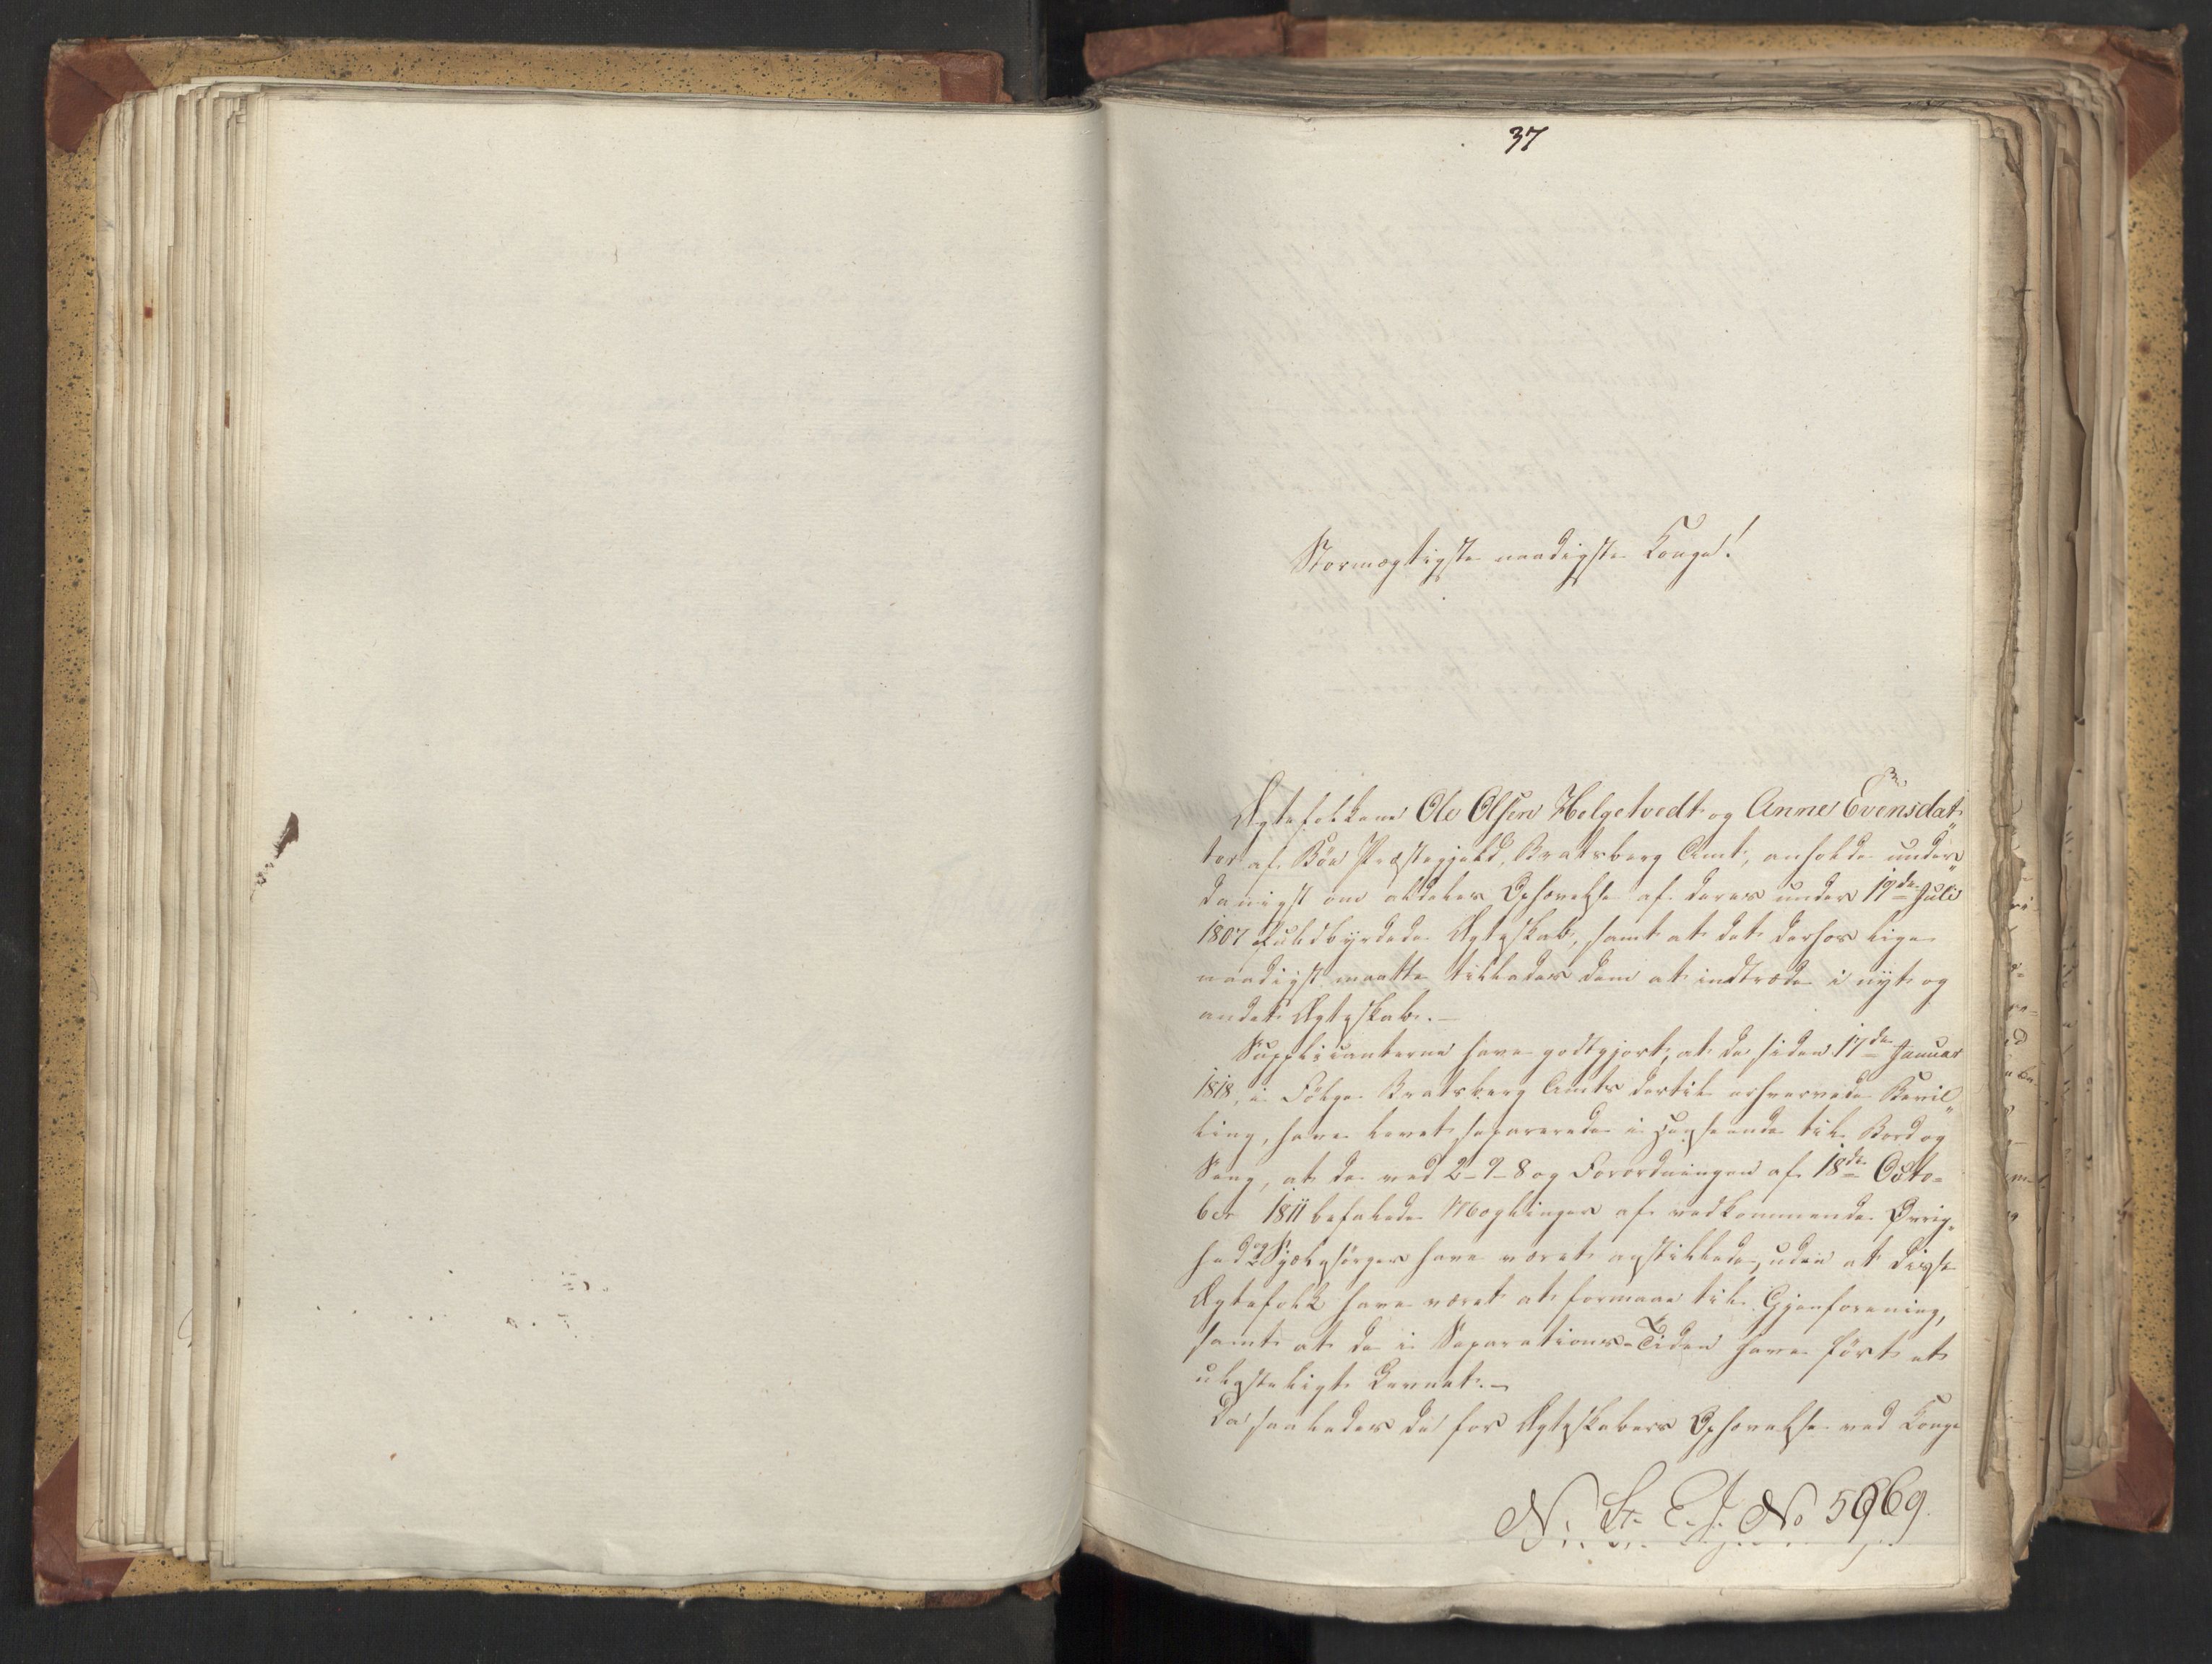 37
Stormægtigste naadigste Konge!
Ægtefolkene Ole Olsen Helgetvedt og Anne Evensdat„
ter af Böe Præstegjeld, Bratsberg Amt, anholde under„
danigst om aldeles Ophævelse af deres under 19de Julii
1807 fuldbyrdede Ægteskab, samt at det derhos lige
naadigst maatte tillades dem at indtræde i nyt og
andet Ægteskab.—
Supplicanterne have godtgjort, at de, siden 17de Januar
1818, i Fölge Bratsberg Amts dertil erhvervede Bevil„
ling, have levet separerede i Henseende til Bord og
Seng, at de ved 2-9-8 og Forordningen af 18de Octo=
ber 1811 befalede Mæglinger af vedkommende Øvrig„
hed og Sjælesörger have været anstillede, uden at disse
Ægtefolk have været at formaae til Gjenforening,
samt at de i Separations-Tiden have fört et
ulasteligt Levnet.—
Da saaledes de for Ægteskabers Ophævelse ved Konge
N. St. E. J. No 5969.